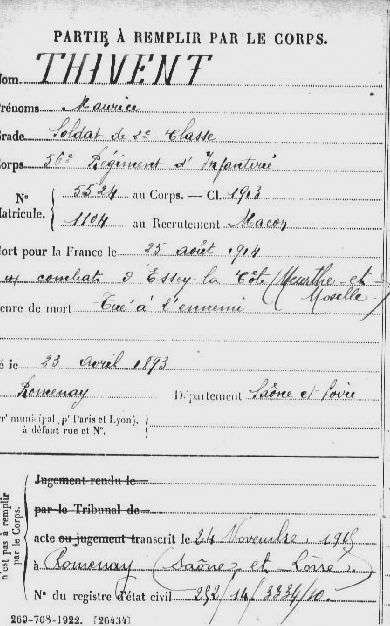 PARTIE À REMPLIR PAR LE CORPS.
Nom THIVENT
Prénoms Maurice
Grade Soldat de 2e Classe
Corps 56e Régiment d'Infanterie
N° Matricule. { 5524 au Corps. — Cl. 1913
1104 au Recrutement Macon
Mort pour la France le 25 août 1914
aux combats d'Essey la Côte (Meurthe-et-
Moselle)
Genre de mort Tué à l'ennemi
Né le 23 avril 1893
Romenay Département Saône et Loire
Arr' municipal (p' Paris et Lyon),
à défaut rue et N°.
n'est pas à remplir
par le Corps.
Jugement rendu le
par le Tribunal de
acte ou jugement transcrit le 24 Novembre 1915
à Romenay (Saône et Loire)
N° du registre d'état civil 252/14/3334/10
269-708-1922. [26434]